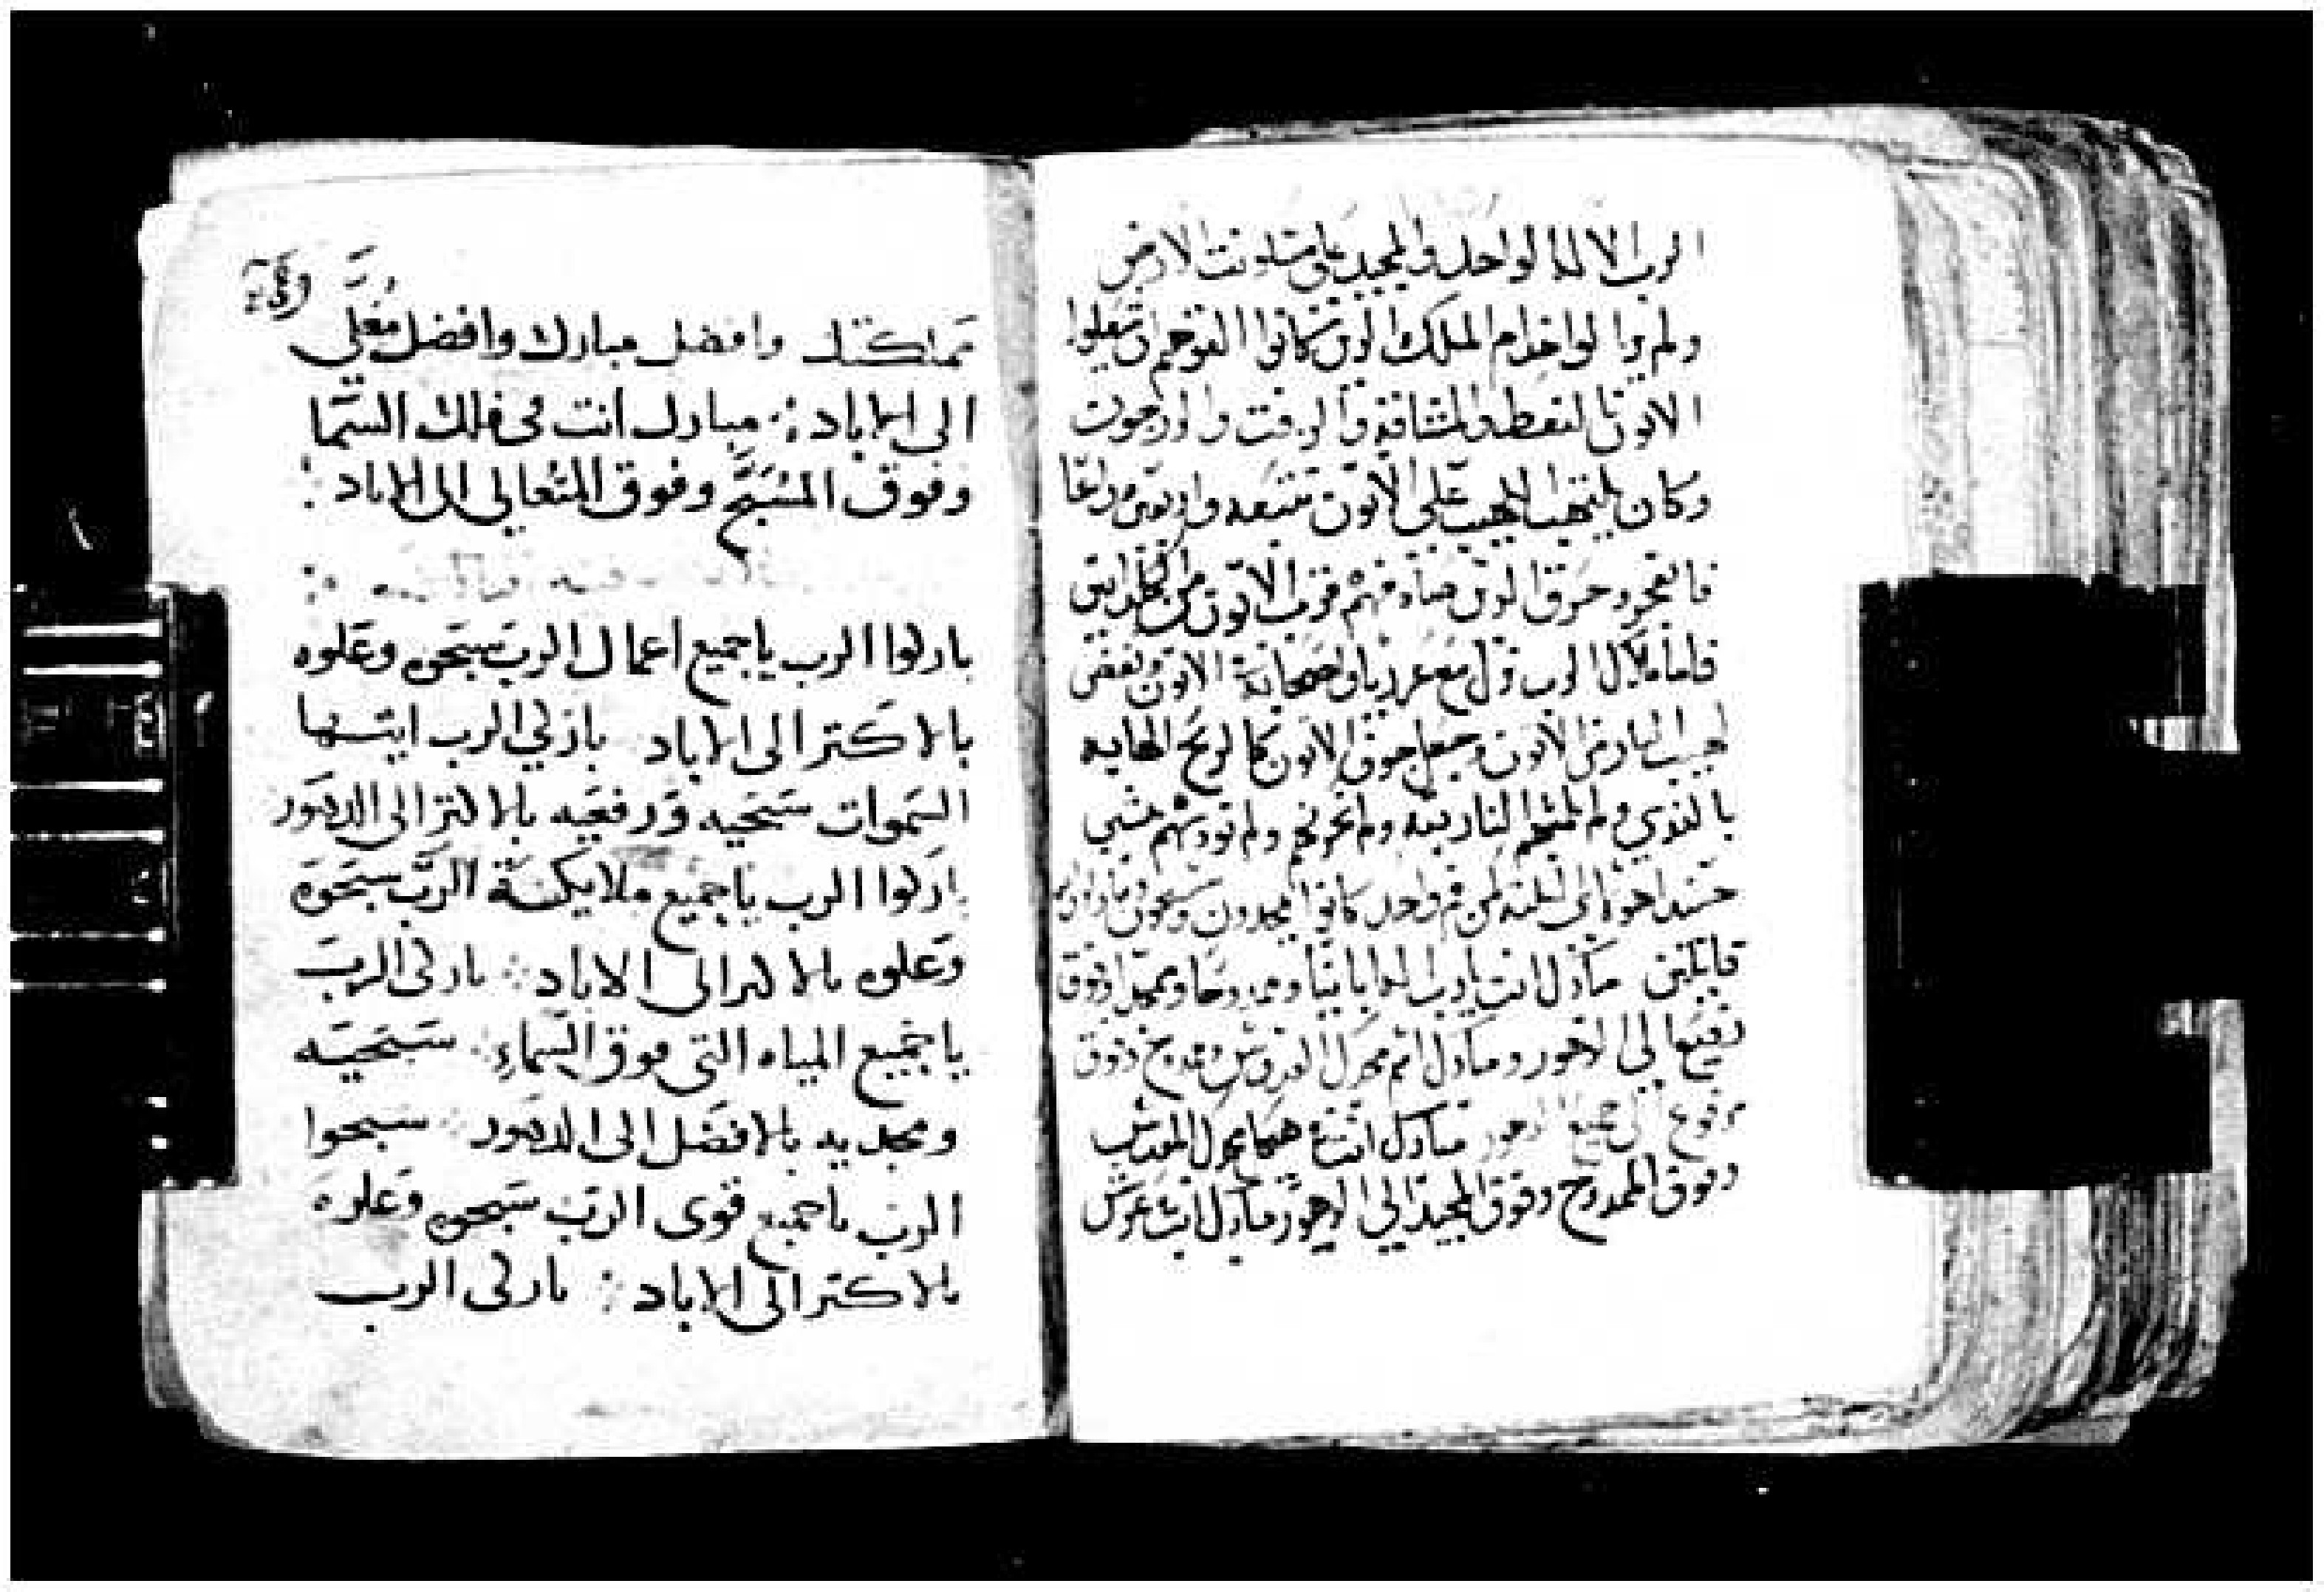 الرب الاله الواحد والمجيد على مسكونت الارض
ولم يزالوا خدام الملك الذين كانوا القوهم ان يشعلوا
الاتون النفط والمشاقه والزفت والزرجون
وكان يلتهب اللهيب على الاتون تسعه واربعين دراعا
الاتون من الكلدانيين
فاما ملاك الرب نزل مع عزريا واصحابه الاتون ونفض
لهيب النار من الاتون وجعل جوف الاتون كالريح الهابه
بالندي ولم تلمسهم النار بته ولم تحزنهم ولم توديهم
حينيد اخذوا الثلثه من فم واحد كانوا يمجدون ويسبحون ويباركون
قايلين مبارك انت يارب اله ابايتنا وممدوحا وممجدا وفوق
الي الدهور ومبارك اسم مجدك القدوس وممدوح وفوق
مرفوع الي جميع الدهور مبارك انت هيكل مجدك المقدس
وفوق الممدوح وفوق المجيد الي الدهور مبارك انت عرش
مملكتك وافضل مبارك وافضل معلي
الى الاباد ⁘ مبارك انت في فلك السما
وفوق المسبح وفوق المتعالي الى الاباد ⁘
باركوا الرب يا جميع اعمال الرب سبحوه وعلوه
بالاكتر الى الاباد باركي الرب ايتها
السموات سبحيه ورفعيه بالاكتر الى الدهور
باركوا الرب يا جميع ملايكة الرب سبحوه
وعلوه بالاكتر الى الاباد ⁘ باركي الرب
يا جميع المياه التي فوق السماء ⁘ سبحيه
ومجديه بالافضل الى الدهور ⁘ سبحوا
الرب يا جميع قوى الرب سبحوه وعلوه
بالاكتر الى الاباد ⁘ باركى الرب